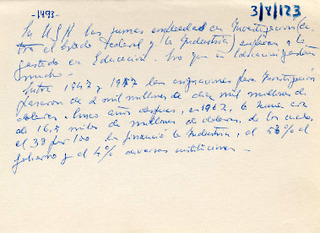 -1493-
3/V/123
En USA las sumas empleadas en Investigación (en-
tre el estado Federal y la Industria) superan a lo
gastado en Educación.
mucho.
Entre 1947 y 1957 las asignaciones para Investigación
pasaron de 2 mil millones de diez mil millones de
dólares. Cinco años después, en 1962, la suma era
de 16,5 miles de millones de dólares, de los cuales,
el 38 por 100 lo financió la Industria, el 58% el
gobierno y el 4% diversas instituciones.